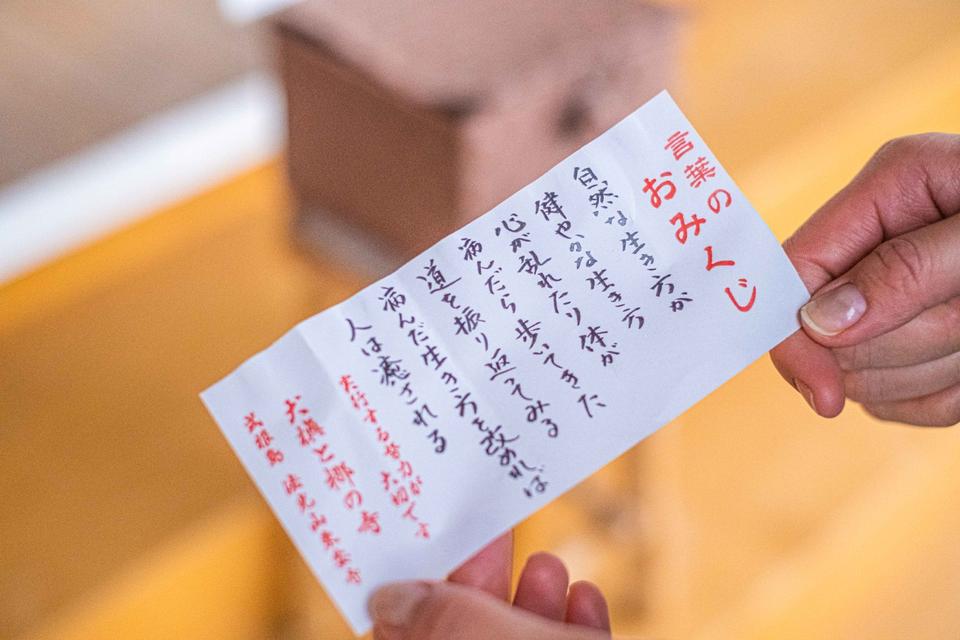 言葉の
おみくじ
自然な生き方が
健やかな生き方
心が乱れたり体が
病んだら歩いてきた
道を振り返ってみる
病んだ生き方を改めれば
人は癒される
実行する努力が
大切です
大樹と郷の寺
式根島 法光山東要寺